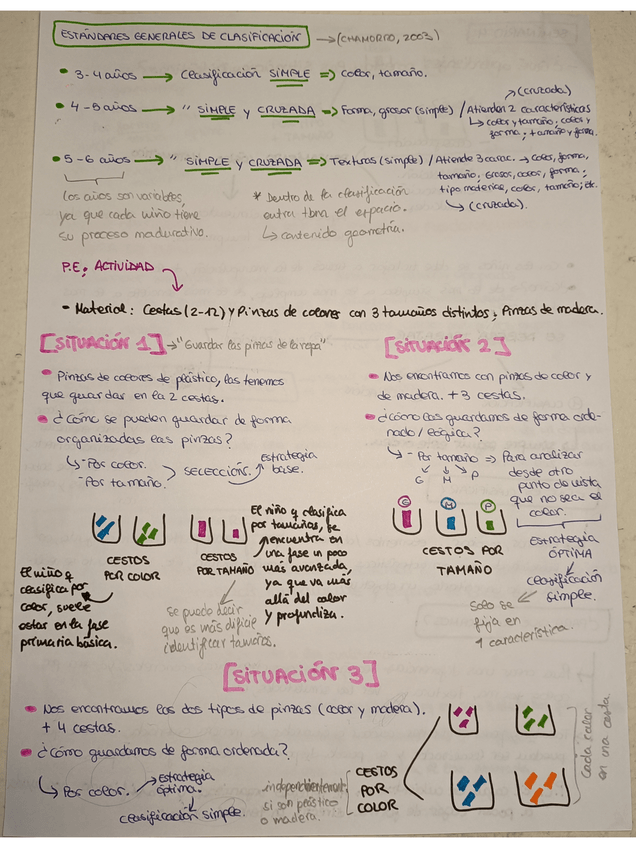 ESTÁNDARES GENERALES DE CLASIFICACIÓN → (CHAMORRO, 2003)
• 3-4 años → Clasificación SIMPLE => Color, tamaño.
• 4-5 años → " SIMPLE y CRUZADA => Forma, grosor (simple) / Atienden 2 características
→ (cruzada)
↳ color y tamaño; color y
forma; tamaño y forma.
• 5-6 años → " SIMPLE y CRUZADA => Texturas (simple) / Atiende 3 carac. → color, forma,
tamaño; grosor, color, forma;
tipo material, color, tamaño; etc.
↳ (cruzada).
Los años son variables,
ya que cada niño tiene
su proceso madurativo.
* Dentro de la clasificación
entra tbn el espacio.
↳ contenido geometría.
P.E; ACTIVIDAD
• Material: Cestas (2-12) y Pinzas de colores con 3 tamaños distintos; Pinzas de madera.
[SITUACIÓN 1] → "Guardar las pinzas de la ropa"
• Pinzas de colores de plástico, las tenemos
que guardar en la 2 cestas.
• ¿Cómo se pueden guardar de forma
organizadas las pinzas?
↳ - Por color.
- Por tamaño.
> SELECCIÓN.
estrategia
base.
CESTOS
POR COLOR
CESTOS
POR TAMAÑO
El niño q clasifica
por tamaños, se
encuentra en
una fase un poco
más avanzada,
ya que va más
allá del color
y profundiza.
El niño q
clasifica por
color, suele
estar en la fase
primaria básica.
Se puede decir
que es más dificil
identificar tamaños.
[SITUACIÓN 2]
• Nos encontramos con pinzas de color y
de madera. + 3 cestas.
• ¿Cómo las guardamos de forma orde-
nada/lógica?
↳ - Por tamaño => Para analizar
G M P
desde otro
punto de vista
que no sea el
color.
G M P
CESTOS POR
TAMAÑO
estrategia
ÓPTIMA
clasificación
simple.
Solo se
fija en
1 característica.
[SITUACIÓN 3]
• Nos encontramos los dos tipos de pinzas (color y madera).
+ 4 cestas.
• ¿Cómo guardamos de forma ordenada?
↳ Por color.
→ estrategia
óptima.
clasificación simple.
independientement.
si son plástico
o madera.
CESTOS
POR
COLOR
Cada color
en una cesta